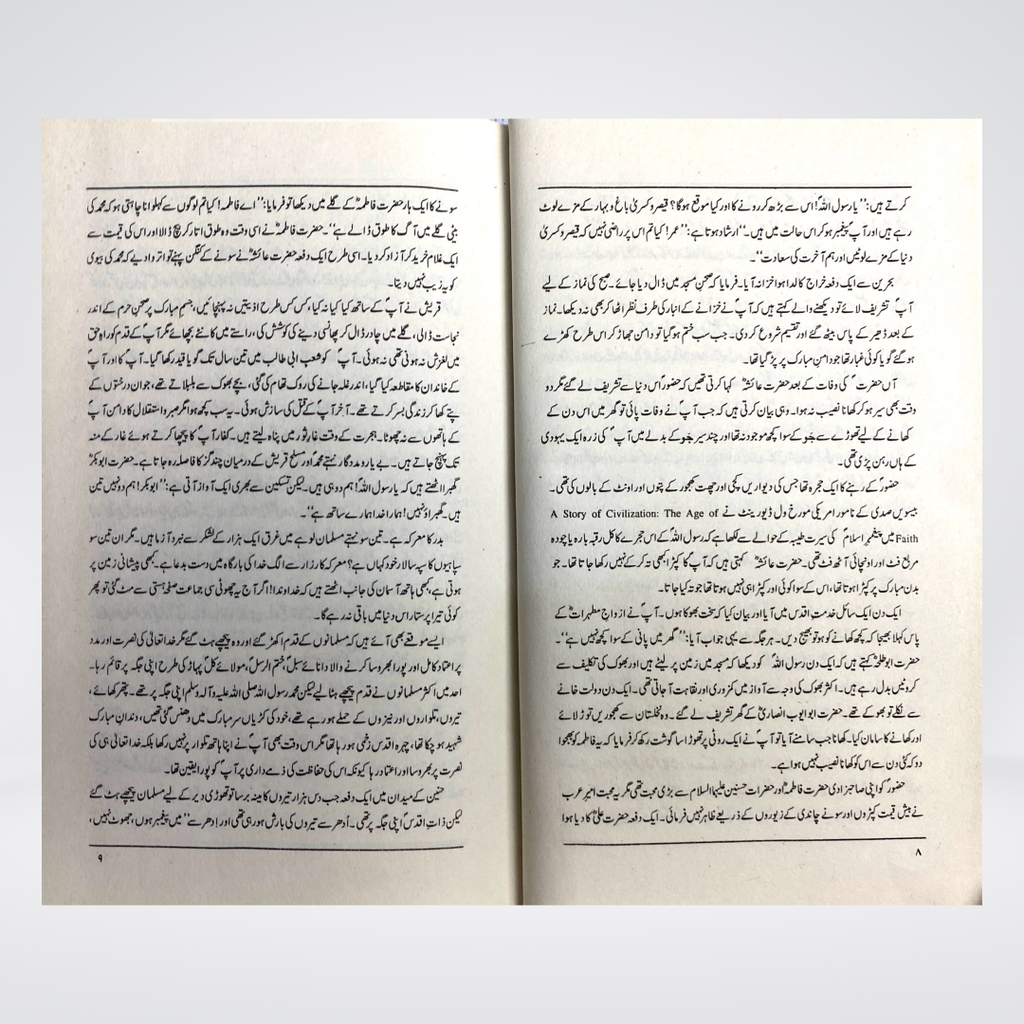 کرتے ہیں: ”یا رسول اللہؐ! اس سے بڑھ کر رونے کا اور کیا موقع ہوگا؟ قیصر و کسریٰ باغ و بہار کے مزے لوٹ
رہے ہیں اور آپؐ پیغمبر ہو کر اس حالت میں ہیں۔“ ارشاد ہوتا ہے: ”عمر! کیا تم اس پر راضی نہیں کہ قیصر و کسریٰ
دنیا کے مزے لوٹیں اور ہم آخرت کی سعادت“۔
بحرین سے ایک دفعہ خراج کا لدا ہوا خزانہ آیا۔ فرمایا کہ صحنِ مسجد میں ڈال دیا جائے۔ صبح کی نماز کے لیے
آپؐ تشریف لائے تو دیکھنے والے کہتے ہیں کہ آپؐ نے خزانے کے انبار کی طرف نظر اٹھا کر بھی نہ دیکھا۔ نماز
کے بعد ڈھیر کے پاس بیٹھ گئے اور تقسیم شروع کر دی۔ جب سب ختم ہوگیا تو دامن جھاڑ کر اس طرح کھڑے
ہوگئے گویا کوئی غبار تھا جو دامنِ مبارک پر پڑ گیا تھا۔
آں حضرتؐ کی وفات کے بعد حضرت عائشہؓ کہا کرتی تھیں کہ حضورؐ اس دنیا سے تشریف لے گئے مگر دو
وقت بھی سیر ہو کر کھانا نصیب نہ ہوا۔ وہی بیان کرتی ہیں کہ جب آپؐ نے وفات پائی تو گھر میں اس دن کے
کھانے کے لیے تھوڑے سے جَو کے سوا کچھ موجود نہ تھا اور چند سیر جَو کے بدلے میں آپؐ کی زرہ ایک یہودی
کے ہاں رہن پڑی تھی۔
حضورؐ کے رہنے کا ایک حجرہ تھا جس کی دیواریں کچی اور چھت کھجور کے پتوں اور اونٹ کے بالوں کی تھی۔
بیسویں صدی کے نامور امریکی مورخ ول ڈیورینٹ نے A Story of Civilization: The Age of
Faith میں پیغمبرِ اسلامؐ کی سیرت طیبہ کے حوالے سے لکھا ہے کہ رسول اللہؐ کے اس حجرے کا کل رقبہ بارہ یا چودہ
مربع فٹ اور اونچائی آٹھ فٹ تھی۔ حضرت عائشہؓ کہتی ہیں کہ آپؐ کا کپڑا کبھی تہ کر کے نہیں رکھا جاتا تھا۔ جو
بدن مبارک پر کپڑا ہوتا تھا، اس کے سوا کوئی اور کپڑا ہی نہیں ہوتا تھا جو تہ کیا جاتا۔
ایک دن ایک سائل خدمتِ اقدس میں آیا اور بیان کیا کہ سخت بھوکا ہوں۔ آپؐ نے ازواجِ مطہراتؓ کے
پاس کہلا بھیجا کہ کچھ کھانے کو ہو تو بھیج دیں۔ ہر جگہ سے یہی جواب آیا: ”گھر میں پانی کے سوا کچھ نہیں ہے“۔
حضرت ابوطلحہؓ کہتے ہیں کہ ایک دن رسول اللہؐ کو دیکھا کہ مسجد میں زمین پر لیٹے ہیں اور بھوک کی تکلیف سے
کروٹیں بدل رہے ہیں۔ اکثر بھوک کی وجہ سے آواز میں کمزوری اور نقاہت آجاتی تھی۔ ایک دن دولت خانے
سے نکلے تو بھوکے تھے۔ حضرت ابو ایوب انصاریؓ کے گھر تشریف لے گئے۔ وہ نخلستان سے کھجوریں توڑ لائے
اور کھانے کا سامان کیا۔ کھانا جب سامنے آیا تو آپؐ نے ایک روٹی پر تھوڑا سا گوشت رکھ کر فرمایا کہ یہ فاطمہؓ کو بھجوا
دو کہ کئی دن سے اس کو کھانا نصیب نہیں ہوا ہے۔
حضورؐ کو اپنی صاحبزادی حضرت فاطمہؓ اور حضرات حسنین علیہما السلام سے بڑی محبت تھی مگر یہ محبت امیرِ عرب
نے بیش قیمت کپڑوں اور سونے چاندی کے زیوروں کے ذریعے ظاہر نہیں فرمائی۔ ایک دفعہ حضرت علیؓ کا دیا ہوا
۸
سونے کا ایک ہار حضرت فاطمہؓ کے گلے میں دیکھا تو فرمایا: ”اے فاطمہ! کیا تم لوگوں سے کہلوانا چاہتی ہو کہ محمدؐ کی
بیٹی گلے میں آگ کا طوق ڈالے ہے“۔ حضرت فاطمہؓ نے اسی وقت وہ طوق اتار کر بیچ ڈالا اور اس کی قیمت سے
ایک غلام خرید کر آزاد کر دیا۔ اسی طرح ایک دفعہ حضرت عائشہؓ نے سونے کے کنگن پہنے تو اتروا دیے کہ محمدؐ کی بیوی
کو یہ زیب نہیں دیتا۔
قریش نے آپؐ کے ساتھ کیا کیا نہ کیا، کس کس طرح اذیتیں نہ پہنچائیں، جسم مبارک پر صحنِ حرم کے اندر
نجاست ڈالی، گلے میں چادر ڈال کر پھانسی دینے کی کوشش کی، راستے میں کانٹے بچھائے مگر آپؐ کے قدم کو راہِ حق
میں لغزش نہ ہوئی تھی نہ ہوئی۔ آپؐ کو شعب ابی طالب میں تین سال تک گویا قید رکھا گیا۔ آپؐ کا اور آپؐ
کے خاندان کا مقاطعہ کیا گیا، اندر غلہ جانے کی روک تھام کی گئی، بچے بھوک سے بلبلاتے تھے، جوان درختوں کے
پتے کھا کر زندگی بسر کرتے تھے۔ آخر آپؐ کے قتل کی سازش ہوئی۔ یہ سب کچھ ہوا مگر صبر و استقلال کا دامن آپؐ
کے ہاتھوں سے نہ چھوٹا۔ ہجرت کے وقت غارِ ثور میں پناہ لیتے ہیں۔ کفار آپؐ کا پیچھا کرتے ہوئے غار کے منہ
تک پہنچ جاتے ہیں۔ بے یار و مددگار نہتے محمدؐ اور مسلح قریش کے درمیان چند گز کا فاصلہ رہ جاتا ہے۔ حضرت ابوبکرؓ
گھبرا اٹھتے ہیں کہ یا رسول اللہؐ! ہم دو ہی ہیں۔ لیکن تسکین سے بھری ایک آواز آتی ہے: ”ابوبکر! ہم دو نہیں تین
ہیں۔ گھبراؤ نہیں! ہمارا خدا ہمارے ساتھ ہے“۔
بدر کا معرکہ ہے۔ تین سو نہتے مسلمان لوہے میں غرق ایک ہزار کے لشکر سے نبرد آزما ہیں۔ مگر ان تین سو
سپاہیوں کا سپہ سالار خود کہاں ہے؟ معرکہ کارزار سے الگ خدا کی بارگاہ میں دست بدعا ہے۔ کبھی پیشانی زمین پر
ہوتی ہے، کبھی ہاتھ آسمان کی جانب اٹھتے ہیں کہ خداوندا! اگر آج یہ چھوٹی سی جماعت صفحۂ ہستی سے مٹ گئی تو پھر
کوئی تیرا پرستار اس دنیا میں باقی نہ رہے گا۔
ایسے موقعے بھی آئے ہیں کہ مسلمانوں کے قدم اکھڑ گئے اور وہ پیچھے ہٹ گئے مگر خدا تعالیٰ کی نصرت اور مدد
پر اعتمادِ کامل اور پورا بھروسا کرنے والا دانائے سبلؐ، ختم الرسلؐ، مولائے کلؐ پہاڑی کی طرح اپنی جگہ پر قائم رہا۔
احد میں اکثر مسلمانوں نے قدم پیچھے ہٹا لیے لیکن محمد رسول اللہ صلی اللہ علیہ وآلہ وسلم اپنی جگہ پر تھے۔ پتھر کھائے،
تیروں، تلواروں اور نیزوں کے حملے ہو رہے تھے، خود کی کڑیاں سرِ مبارک میں دھنس گئی تھیں، دندانِ مبارک
شہید ہو چکا تھا، چہرہ اقدس زخمی ہو رہا تھا مگر اس وقت بھی آپؐ نے اپنا ہاتھ تلوار پر نہیں رکھا بلکہ خدا تعالیٰ ہی کی
نصرت پر بھروسا اور اعتماد رہا کیونکہ اس کی حفاظت کی ذمے داری پر آپؐ کو پورا یقین تھا۔
حنین کے میدان میں ایک دفعہ جب دس ہزار تیروں کا مینہ برسا تو تھوڑی دیر کے لیے مسلمان پیچھے ہٹ گئے
لیکن ذاتِ اقدسؐ اپنی جگہ پر تھی۔ اُدھر سے تیروں کی بارش ہو رہی تھی اور اِدھر سے ”میں پیغمبر ہوں، جھوٹ نہیں،
۹